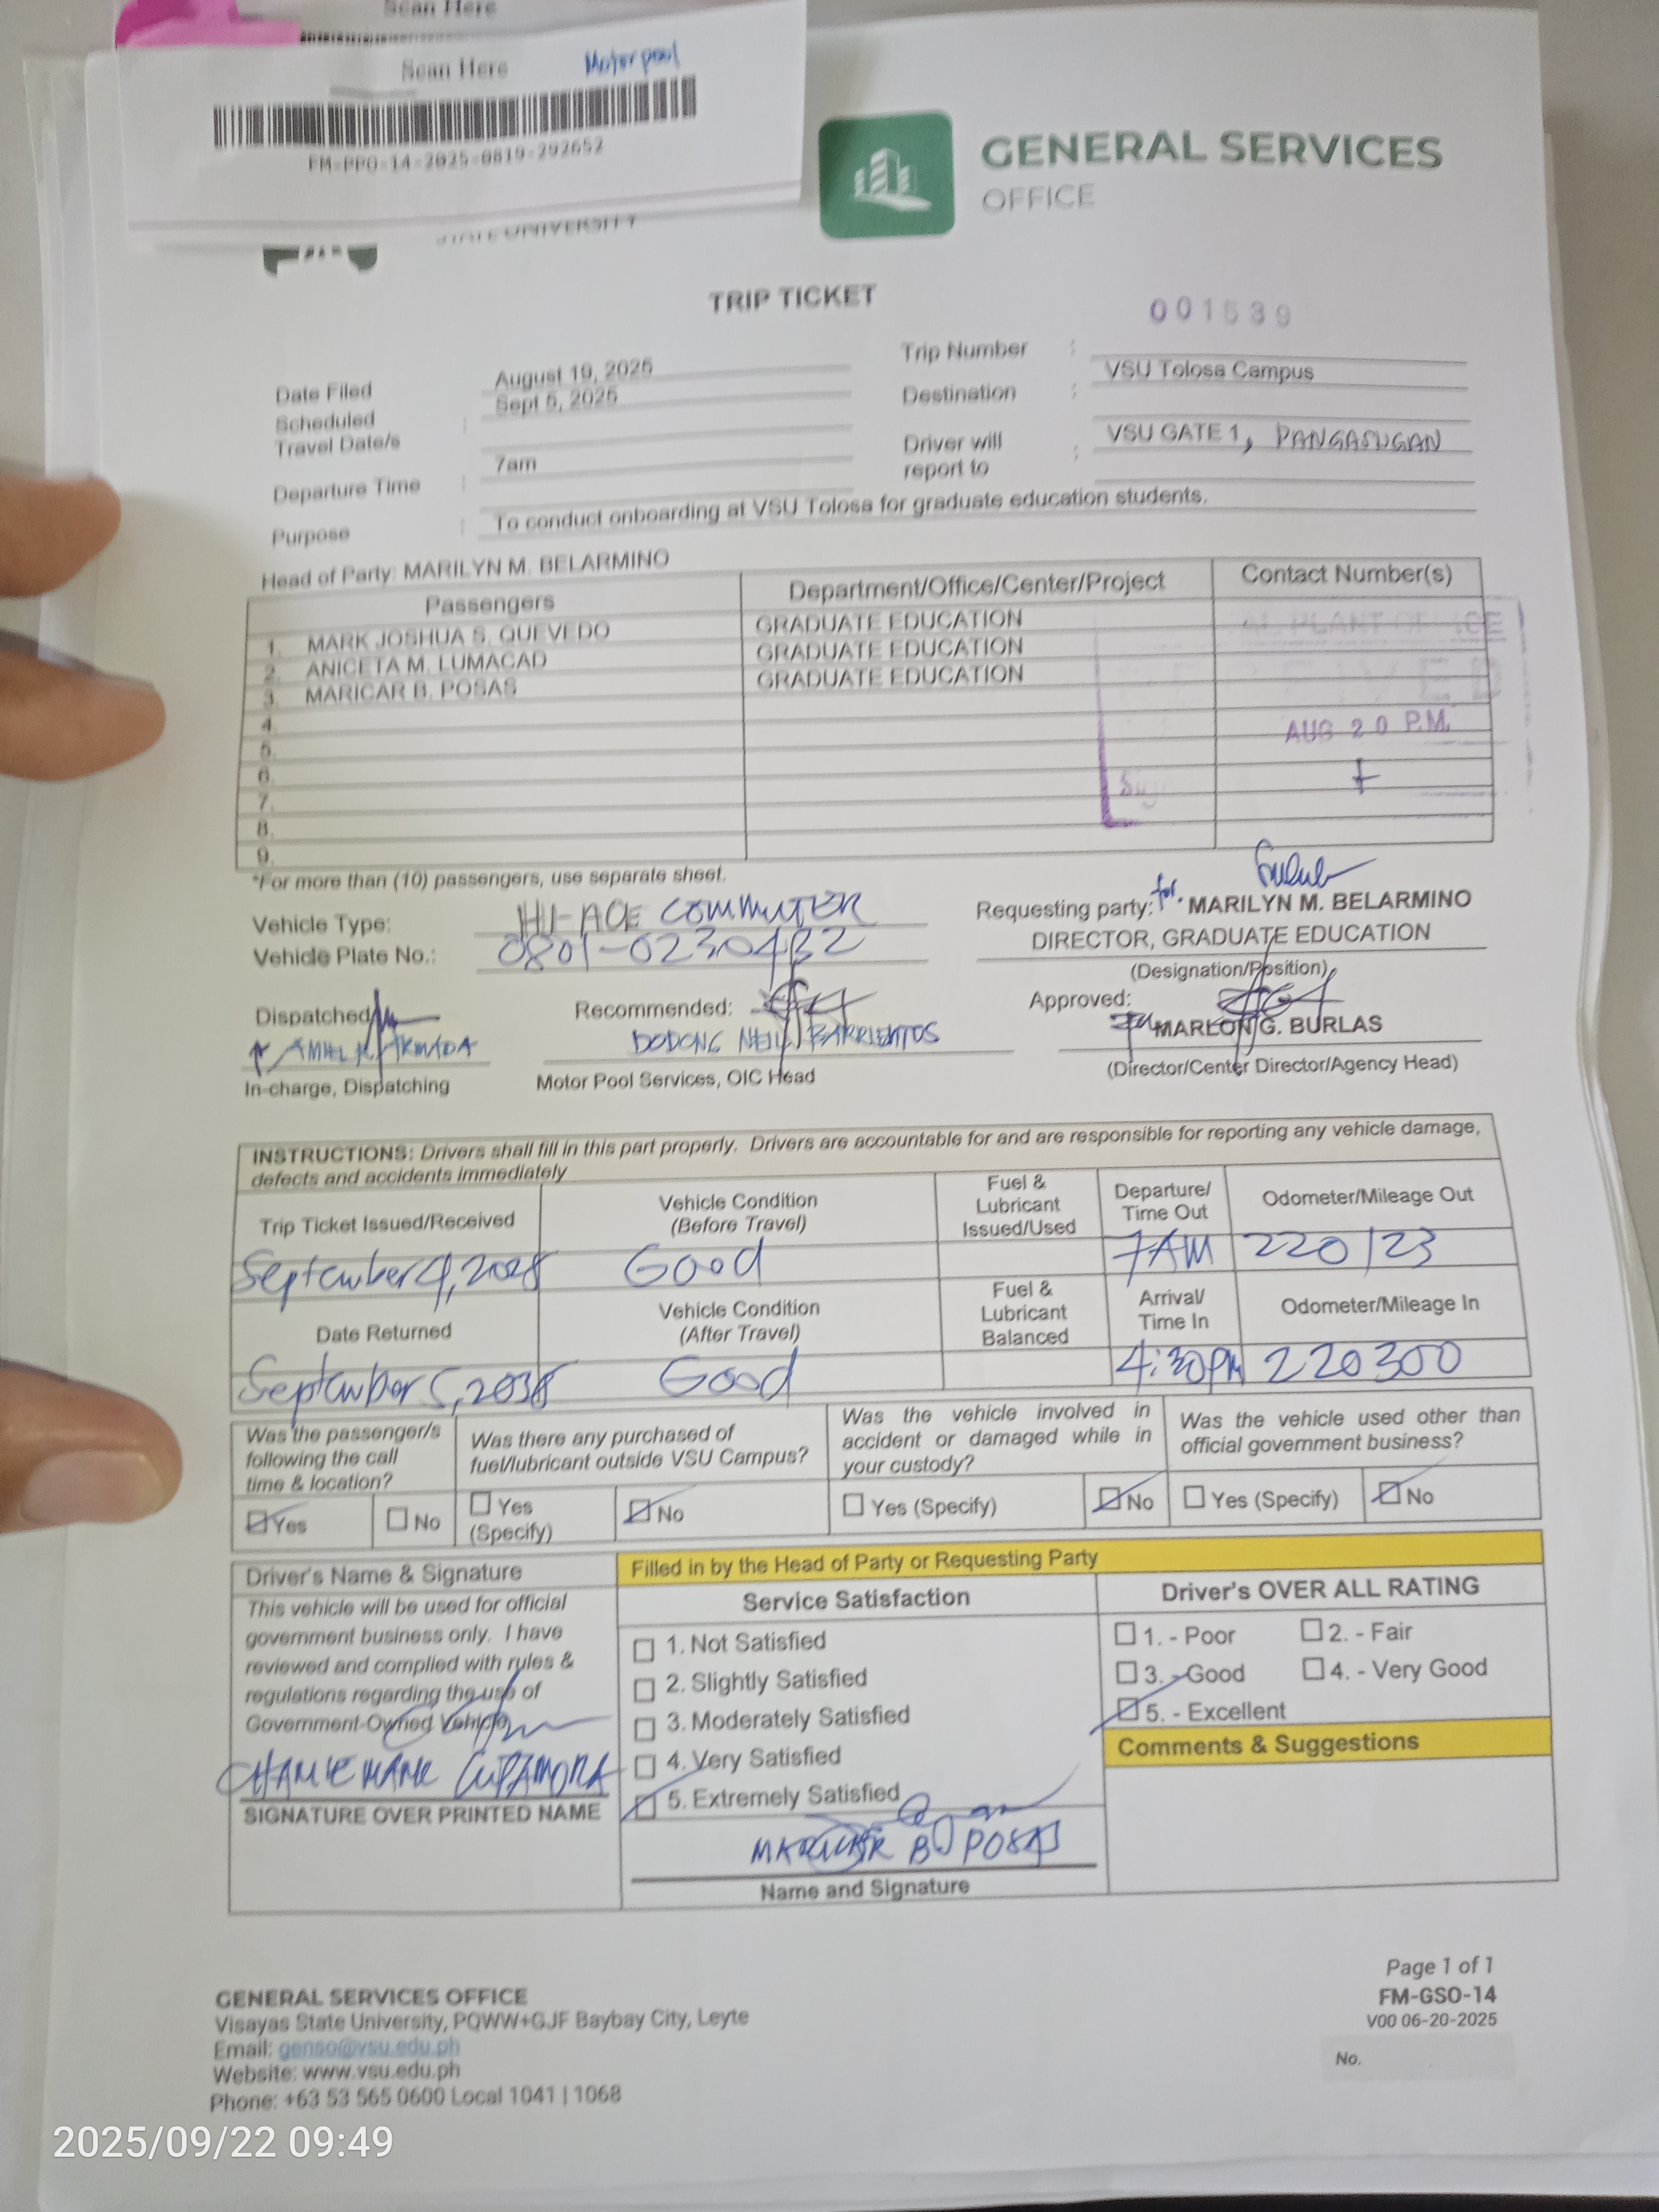 Scan Here
Scan Here Motorpool
FM-PPO-14-2025-0819-292652
STATE UNIVERSITY
GENERAL SERVICES
OFFICE
TRIP TICKET
001539
Date Filed August 19, 2025
Trip Number :
Scheduled Travel Date/s : Sept 5, 2025
Destination : VSU Tolosa Campus
Departure Time : 7am
Driver will report to : VSU GATE 1, PANGASUGAN
Purpose : To conduct onboarding at VSU Tolosa for graduate education students.
Head of Party: MARILYN M. BELARMINO
Passengers Department/Office/Center/Project Contact Number(s)
1. MARK JOSHUA S. QUEVEDO GRADUATE EDUCATION
2. ANICETA M. LUMACAD GRADUATE EDUCATION
3. MARICAR B. POSAS GRADUATE EDUCATION
4.
5.
6.
7.
8.
9.
AUG 20 P.M.
*For more than (10) passengers, use separate sheet.
Vehicle Type: HI-ACE COMMUTER
Requesting party: for. MARILYN M. BELARMINO
Vehicle Plate No.: 0801-0230482
DIRECTOR, GRADUATE EDUCATION
(Designation/Position)
Dispatched Recommended: Approved:
ARMADA DODONG NEIL BARRIENTOS MARLON G. BURLAS
In-charge, Dispatching Motor Pool Services, OIC Head (Director/Center Director/Agency Head)
INSTRUCTIONS: Drivers shall fill in this part properly. Drivers are accountable for and are responsible for reporting any vehicle damage,
defects and accidents immediately
Trip Ticket Issued/Received Vehicle Condition (Before Travel) Fuel & Lubricant Issued/Used Departure/ Time Out Odometer/Mileage Out
September 4, Good 7AM 220123
Date Returned Vehicle Condition (After Travel) Fuel & Lubricant Balanced Arrival/ Time In Odometer/Mileage In
September 5, Good 4:30PM 220300
Was the passenger/s following the call time & location?
Yes No
Was there any purchased of fuel/lubricant outside VSU Campus?
Yes (Specify) No
Was the vehicle involved in accident or damaged while in your custody?
Yes (Specify) No
Was the vehicle used other than official government business?
Yes (Specify) No
Driver's Name & Signature
This vehicle will be used for official
government business only. I have
reviewed and complied with rules &
regulations regarding the use of
Government-Owned Vehicle
SIGNATURE OVER PRINTED NAME
Filled in by the Head of Party or Requesting Party
Service Satisfaction
1. Not Satisfied
2. Slightly Satisfied
3. Moderately Satisfied
4. Very Satisfied
5. Extremely Satisfied
MARICAR B POSAS
Name and Signature
Driver's OVER ALL RATING
1. - Poor 2. - Fair
3. - Good 4. - Very Good
5. - Excellent
Comments & Suggestions
GENERAL SERVICES OFFICE
Visayas State University, PQWW+GJF Baybay City, Leyte
Email: genso@vsu.edu.ph
Website: www.vsu.edu.ph
Phone: +63 53 565 0600 Local 1041 | 1068
Page 1 of 1
FM-GSO-14
V00 06-20-2025
No.
2025/09/22 09:49